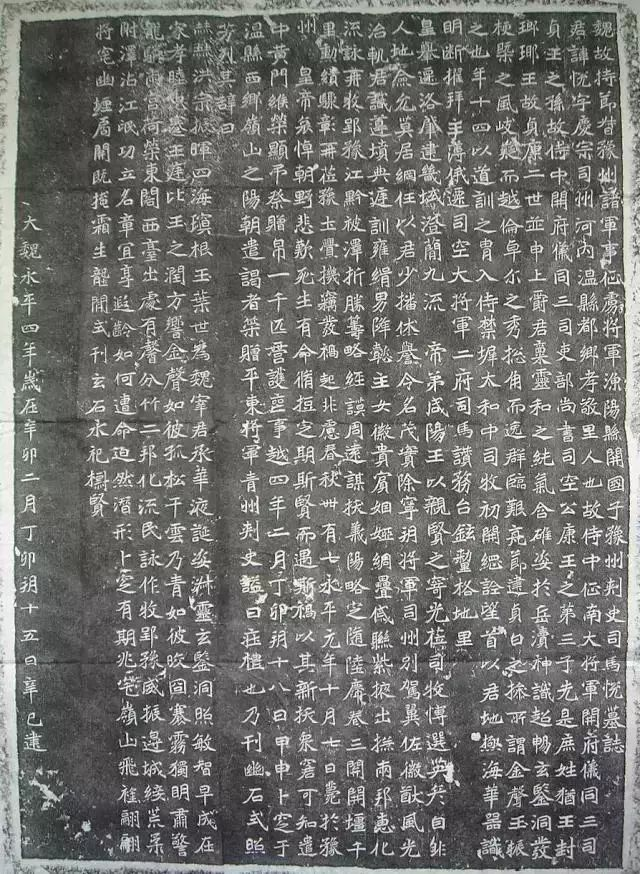 魏故持節督豫州諸軍事征虜將軍漁陽縣開國子豫州刺史司馬悅墓誌
君諱悅字慶宗司州河內溫縣都鄉孝敬里人也故侍中征南大將軍開府儀同三司
貞王之孫故侍中開府儀同三司吏部尚書司空公康王之第三子先是庶姓猶王封
琅琊王故貞康二世並申上爵君稟靈和之純氣含確姿於岳瀆神識超暢玄鑒洞發
梗槩之風岐嶷而越倫卓尒之秀揔角而逸群臨艱亮節建貞白之操所謂金聲玉振
之也年十四以道訓之胄入侍禁墀太和中司牧初開綱詮望首以君地極海華器識
明斷擢拜主薄俄遷司空大將軍二府司馬讚務台鉉釐格地里
皇轝遷洛肇建畿域澄簡九流 帝弟咸陽王以親賢之寄光莅司牧博選英彥自非
人地僉允莫居綱任以君少播休譽令名茂實除寧朔將軍司州別駕翼佐徽猷風光
治軌君識遵墳典遲訓雍緝男降懿主女徽貴賓姻婭綢疊戚聯紫掖出撫兩邦惠化
流詠再牧郢豫江黔被澤折勝籌略經謨周遠謀扶義陽略定隨陸席卷三關開壃千
里勳績驟彰再莅豫土舋機竊發禍起非慮春秋卌有七永平元年十月七日薨於豫
州 皇帝哀悼朝野悲歎死生有命脩短定期斯賢而遇斯禍以其新扶衆窘可知遣
中黃門緱榮顯弔祭贈帛一千匹營護喪事越四年二月丁卯朔十八日甲申卜窆于
溫縣西鄉嶺山之陽朝遣謁者策贈平東將軍青州刺史謚曰莊禮也乃刊幽石式照
芳烈其辭曰
赫赫洪宗振暉四海瓊根玉葉世為魏宰君承華液誕姿淋靈玄鑒洞照敏智早成在
家孝睦忠蹇王廷比王之潤方響金聲如彼孤松干雲乃青如彼皎囧寨霧獨明肅警
龍驂宿宮荷榮東閤西臺出處有聲分竹二邦化流民詠作牧郢豫威振邊城綏荒柔
附澤沾江岷功立名章宜享遐齡如何遭命迫然潛形卜窆有期兆宅嶺山飛旌翩翩
將窀幽埏扃開既掩霜生壟間式刊玄石永祀標賢
大魏永平四年歲在辛卯二月丁卯朔十五日辛巳建